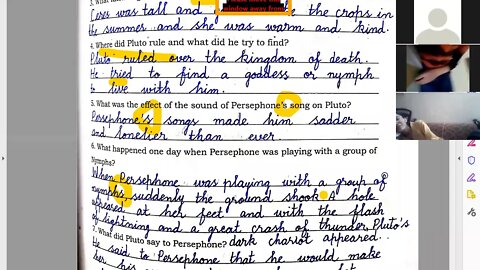 Ceres was tall and the crops in
the summer and she was warm and kind.
4. Where did Pluto rule and what did he try to find?
Pluto ruled over the kingdom of death.
He tried to find a goddess or nymph
to live with him.
5. What was the effect of the sound of Persephone's song on Pluto?
Persephone's songs made him sadder
and lonelier than ever.
6. What happened one day when Persephone was playing with a group of
Nymphs?
When Persephone was playing with a group of
nymphs, suddenly the ground shook. A hole
appeared at her feet and with the flash
of lightning and a great crash of thunder, Pluto's
7. What did Pluto say to Persephone? dark chariot appeared..
He said to Persephone that he would make
her his